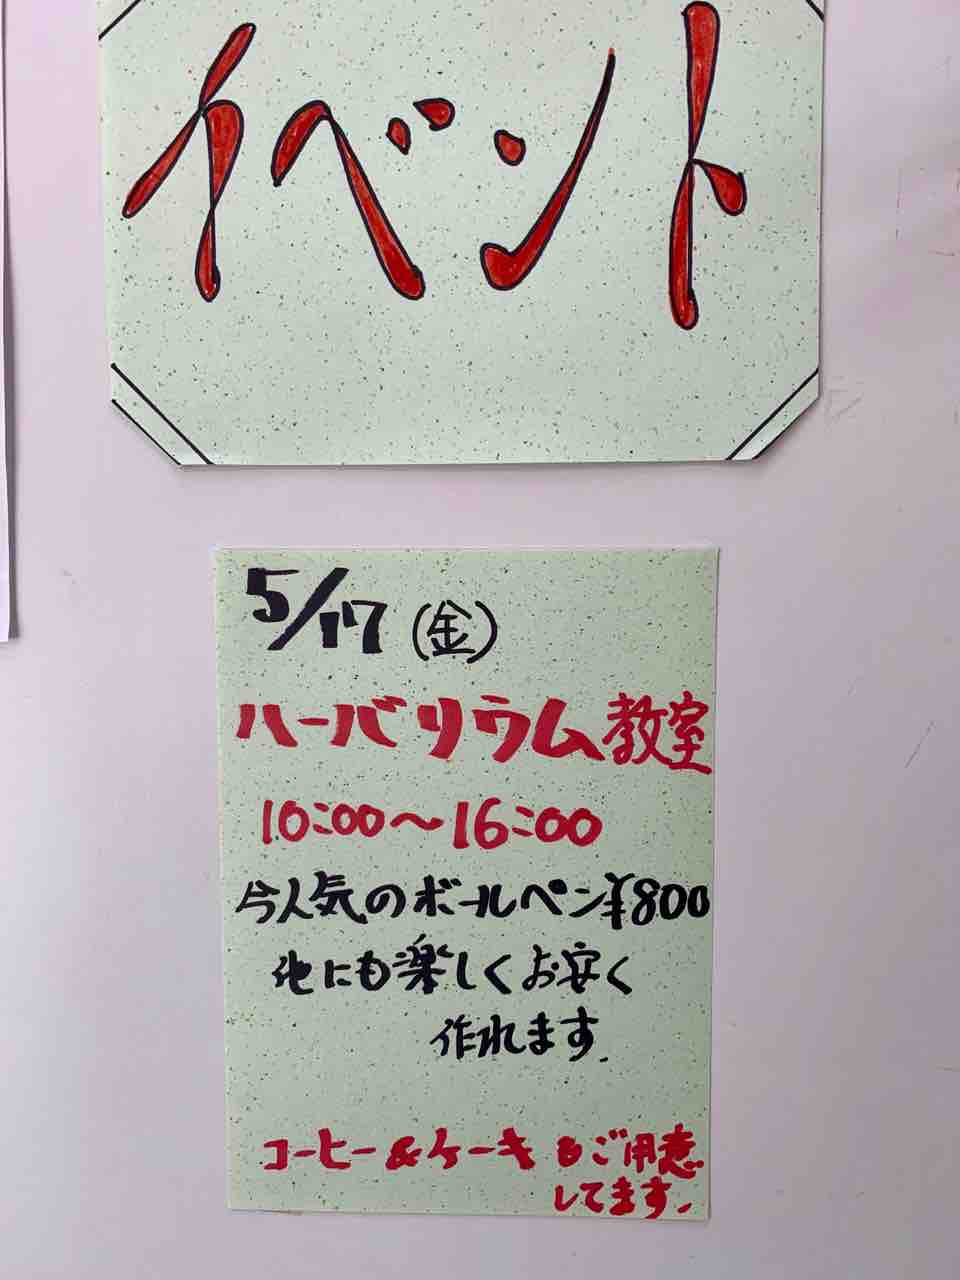 イベント
5/17(金)
ハーバリウム教室
10:00〜16:00
今人気のボールペン¥800
他にも楽しくお安く
作れます.
コーヒー&ケーキもご用意
してます.